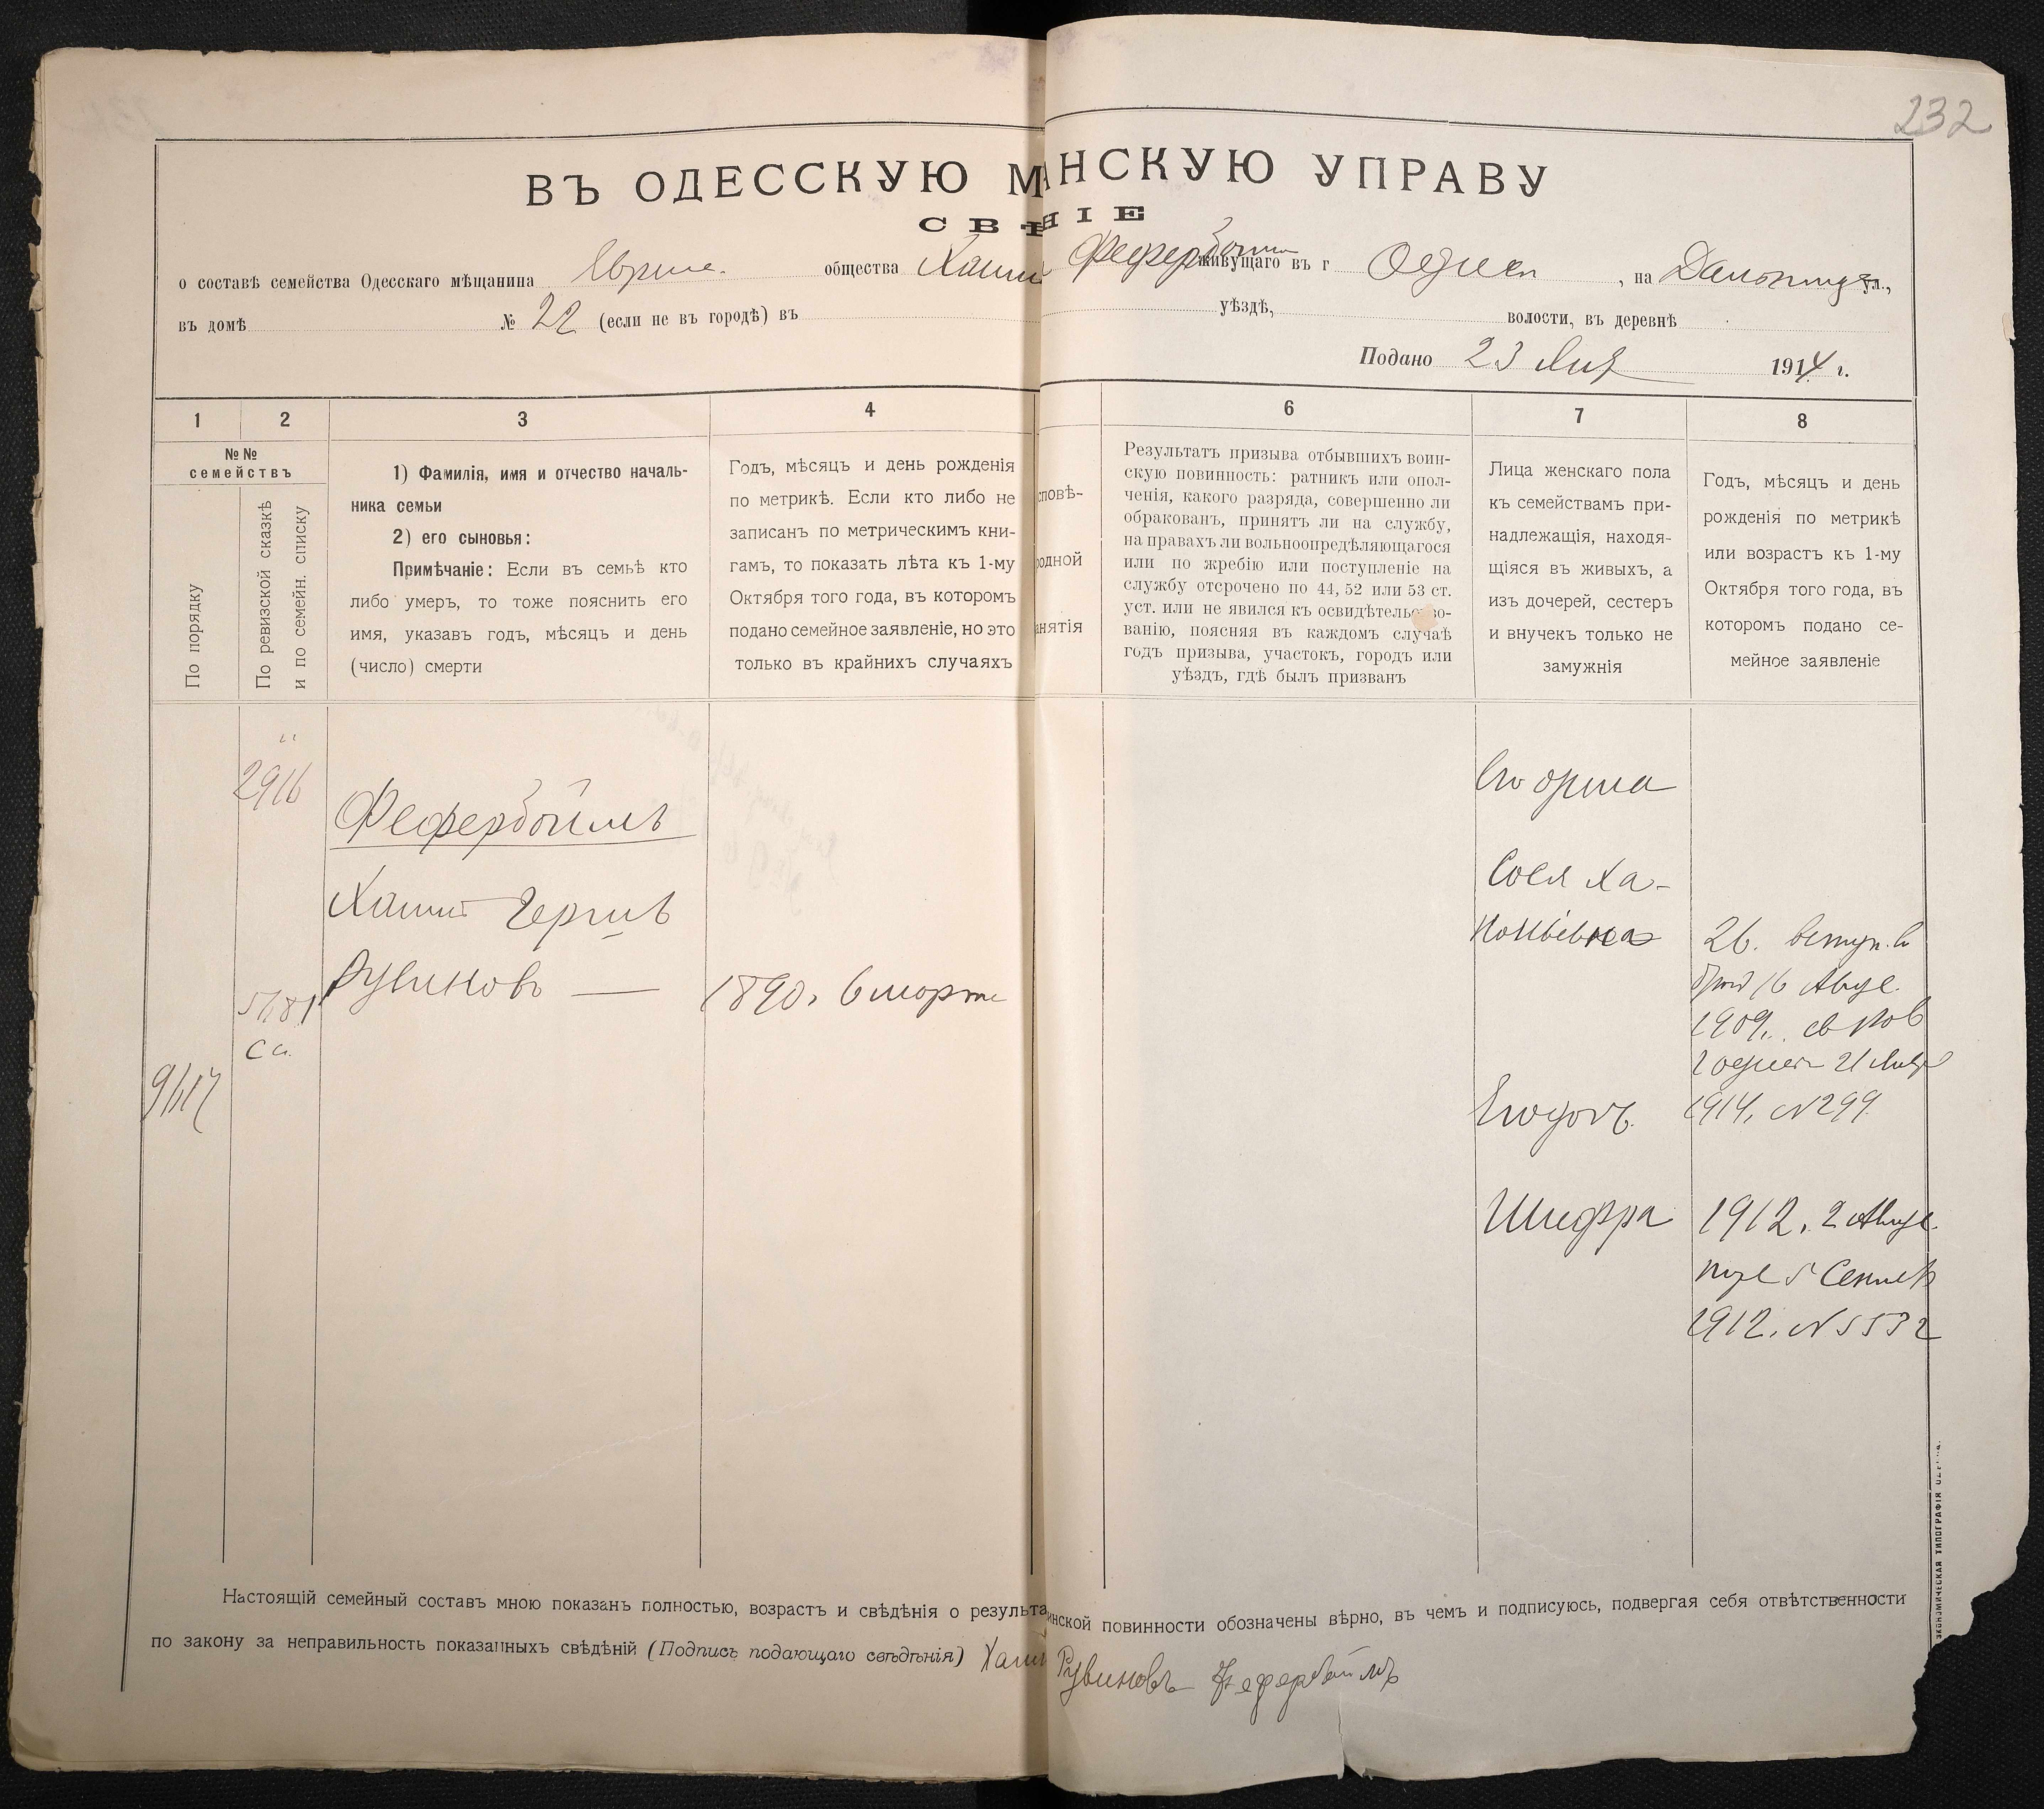 232
ВЪ ОДЕССКУЮ М НСКУЮ УПРАВУ
СВѢ НІЕ
о составѣ семейства Одесскаго мѣщанина общества Хаим Фефербойм живущаго въ г Одессе, на Дальницк ул.,
въ домѣ № 22 (если не въ городѣ) въ уѣздѣ, волости, въ деревнѣ
Подано 23 Янв 1914 г.
1 2 3 4 6 7 8
№№
семействъ
По порядку
По ревизской сказкѣ
и по семейн. списку
1) Фамилія, имя и отчество началь-
ника семьи
2) его сыновья:
Примѣчаніе: Если въ семьѣ кто
либо умеръ, то тоже пояснить его
имя, указавъ годъ, мѣсяцъ и день
(число) смерти
Годъ, мѣсяцъ и день рожденія
по метрикѣ. Если кто либо не
записанъ по метрическимъ кни-
гамъ, то показать лѣта къ 1-му
Октября того года, въ которомъ
подано семейное заявленіе, но это
только въ крайнихъ случаяхъ
сповѣ-
родной
анятія
Результатъ призыва отбывшихъ воин-
скую повинность: ратникъ или опол-
ченія, какого разряда, совершенно ли
обракованъ, принятъ ли на службу,
на правахъ ли вольноопредѣляющагося
или по жребію или поступленіе на
службу отсрочено по 44, 52 или 53 ст.
уст. или не явился къ освидѣтельство-
ванію, поясняя въ каждомъ случаѣ
годъ призыва, участокъ, городъ или
уѣздъ, гдѣ былъ призванъ
Лица женскаго пола
къ семействамъ при-
надлежащія, находя-
щіяся въ живыхъ, а
изъ дочерей, сестеръ
и внучекъ только не
замужнія
Годъ, мѣсяцъ и день
рожденія по метрикѣ
или возрастъ къ 1-му
Октября того года, въ
которомъ подано се-
мейное заявленіе
2916
Фефербоймъ
Хаим Гершъ
Рувиновъ — 1890. 6 марта
5181
Са.
9417
Его жена
Соея Ха-
ноньевна
26. вступ. в
брак 16 Авгус.
1909. св Нов
Одесса 21 Янв
1914. №299.
Его дочь.
Шифра
1912. 2 Авгус.
5 Сентяб
1912. №5532
Настоящій семейный составъ мною показанъ полностью, возрастъ и свѣдѣнія о результа инской повинности обозначены вѣрно, въ чемъ и подписуюсь, подвергая себя отвѣтственности
по закону за неправильность показанныхъ свѣдѣній (Подпись подающаго свѣдѣнія) Хаим Рувиновъ Фефербоймъ
ЭКОНОМИЧЕСКАЯ ТИПОГРАФІЯ